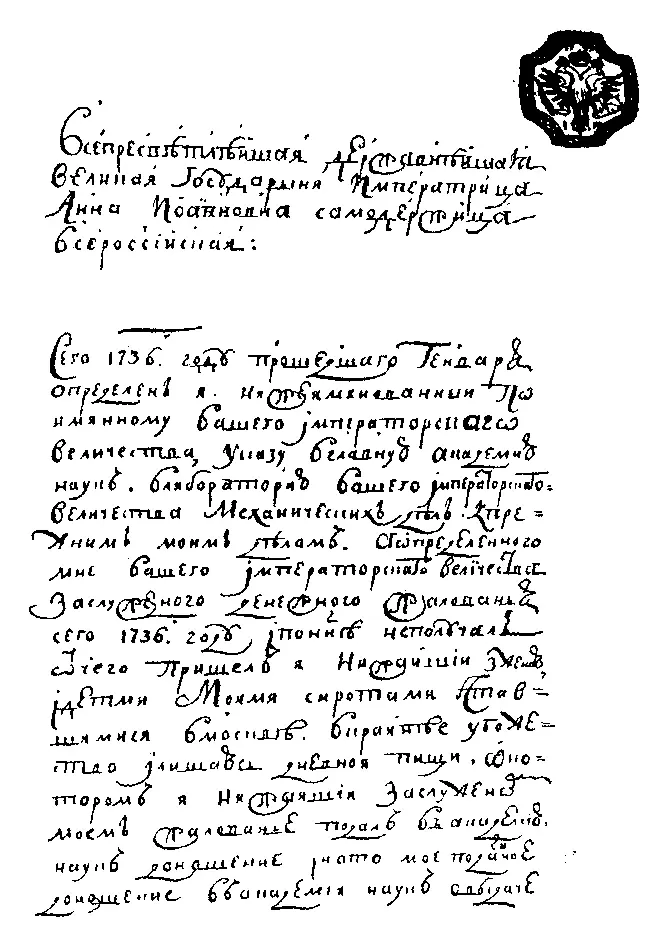 Всепресвѣтлѣйшая державнѣйшая
великая Государыня Императрица
Анна Иоанновна самодержица
всероссійская:
Сего 1736. году прошедшаго Генваря
определенъ я. нижеимянованный По
имянному вашего імператорскаго
величества, Указу вглавную академию
наукъ. влабораторию вашего імператорского=
величества Механическихъ дѣлъ. Кпре=
жнимъ моимъ дѣламъ. определенного
мне вашего імператорского величества
Заслуженого денежного жалованья
сего 1736. году іпонынѣ неполучалъ
отчего Пришелъ я Нижайшіи Зженою
ідетми Моими сиротами Остав=
шимися вмосквѣ. вкрайнѣе убоже=
ство ілишаюсь дневной пищи, око=
торомъ я Нижайшіи Заслуженомъ
моемъ жалованье подалъ въакадемию.
наукъ доношение інато мое поданое
доношение въакадемиі наукъ овыдаче